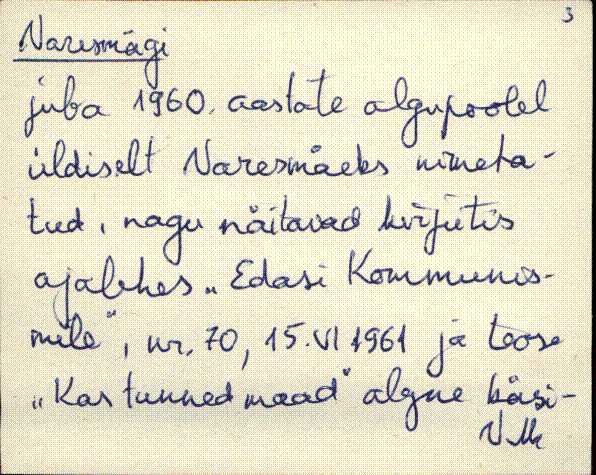 3
Naresmägi
juba 1960. aastate algupoolel
üldiselt Naresmäeks nimeta-
tud, nagu näitavad kirjutis
ajalehes „Edasi Kommunis-
mile", nr. 70, 15. VI 1961 ja teose
„Kas tunned maad" algne käsi-